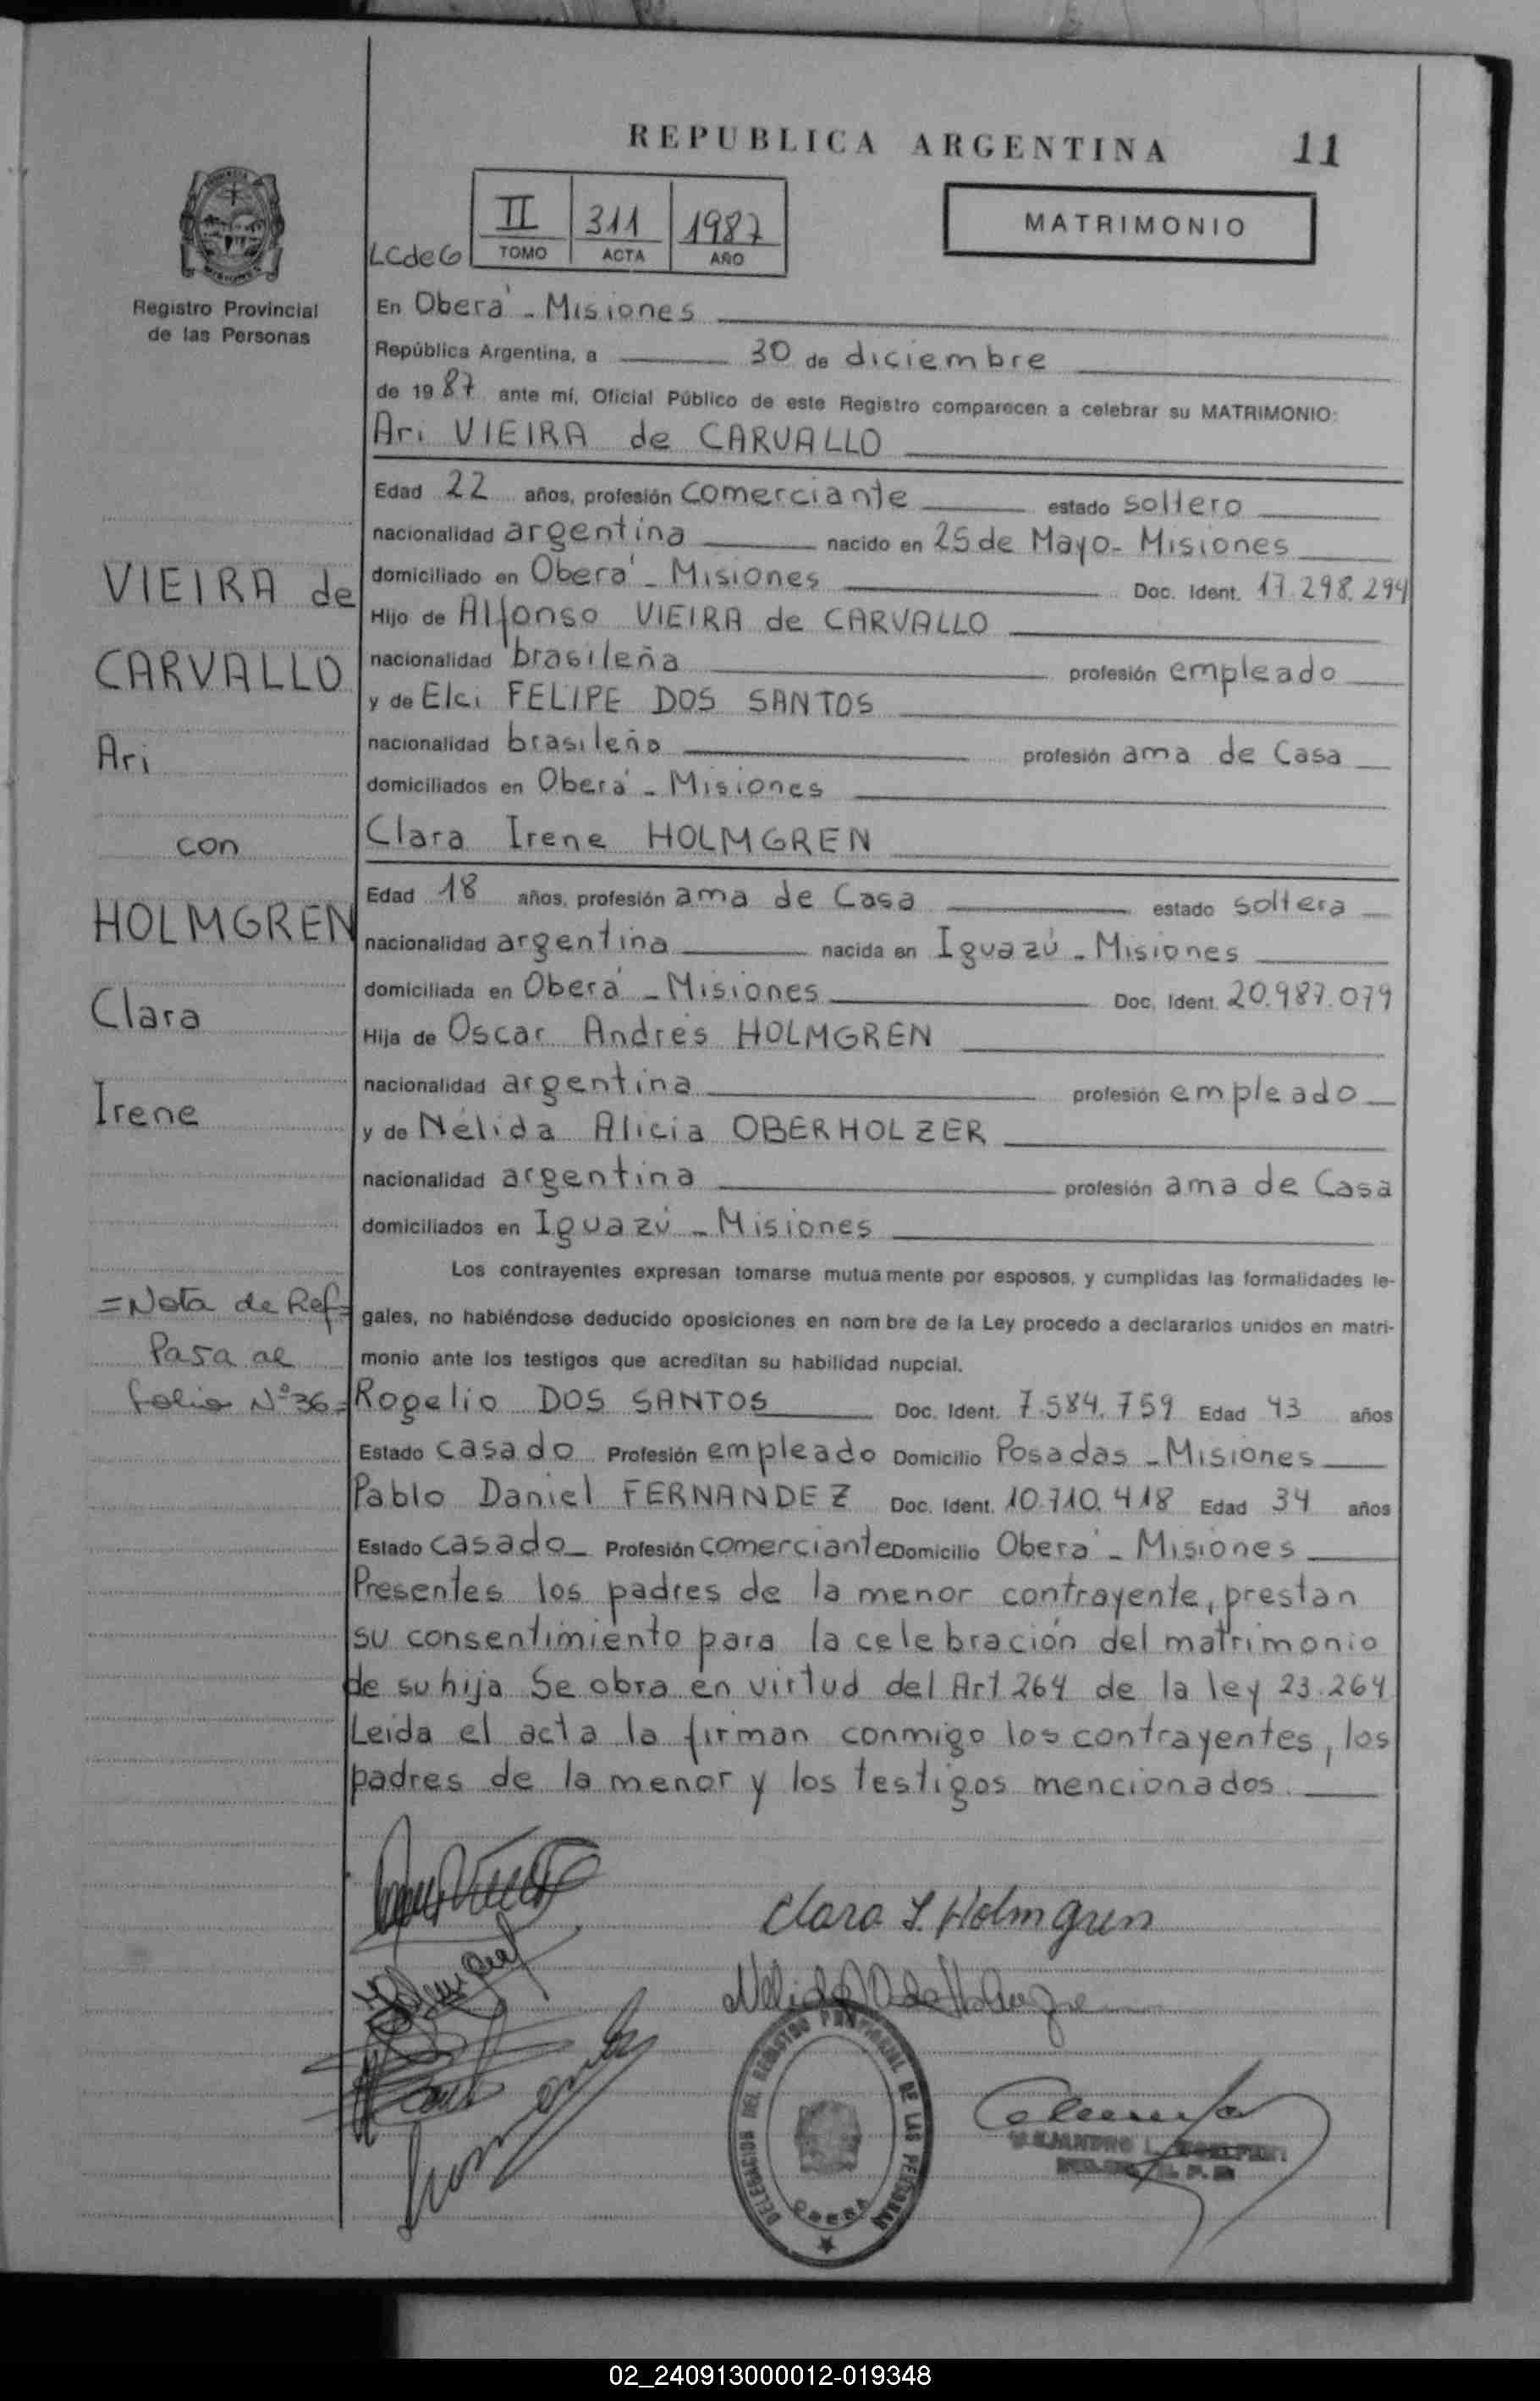 REPUBLICA ARGENTINA 11
II 311 1987
LCdeG TOMO ACTA AÑO
MATRIMONIO
Registro Provincial
de las Personas
En Oberá - Misiones
República Argentina, a 30 de diciembre
de 1987 ante mí, Oficial Público de este Registro comparecen a celebrar su MATRIMONIO:
Ari VIEIRA de CARVALLO
Edad 22 años, profesión comerciante estado soltero
nacionalidad argentina nacido en 25 de Mayo - Misiones
domiciliado en Oberá - Misiones Doc. Ident. 17.298.294
Hijo de Alfonso VIEIRA de CARVALLO
nacionalidad brasileña profesión empleado
y de Elci FELIPE DOS SANTOS
nacionalidad brasileña profesión ama de Casa
domiciliados en Oberá - Misiones
Clara Irene HOLMGREN
Edad 18 años, profesión ama de Casa estado soltera
nacionalidad argentina nacida en Iguazú - Misiones
domiciliada en Oberá - Misiones Doc. Ident. 20.987.079
Hija de Oscar Andrés HOLMGREN
nacionalidad argentina profesión empleado
y de Nélida Alicia OBERHOLZER
nacionalidad argentina profesión ama de Casa
domiciliados en Iguazú - Misiones
Los contrayentes expresan tomarse mutuamente por esposos, y cumplidas las formalidades le-
gales, no habiéndose deducido oposiciones en nombre de la Ley procedo a declararlos unidos en matri-
monio ante los testigos que acreditan su habilidad nupcial.
Rogelio DOS SANTOS Doc. Ident. 7.584.759 Edad 43 años
Estado casado Profesión empleado Domicilio Posadas - Misiones
Pablo Daniel FERNANDEZ Doc. Ident. 10.710.418 Edad 34 años
Estado casado Profesión comerciante Domicilio Oberá - Misiones
Presentes los padres de la menor contrayente, prestan
su consentimiento para la celebración del matrimonio
de su hija Se obra en virtud del Art 264 de la ley 23.264
Leida el acta la firman conmigo los contrayentes, los
padres de la menor y los testigos mencionados.
VIEIRA de
CARVALLO
Ari
con
HOLMGREN
Clara
Irene
=Nota de Ref=
Pasa al
folio Nº 36=
Clara I. Holmgren
DELEGACION DEL REGISTRO PROVINCIAL DE LAS PERSONAS
OBERA
02_240913000012-019348